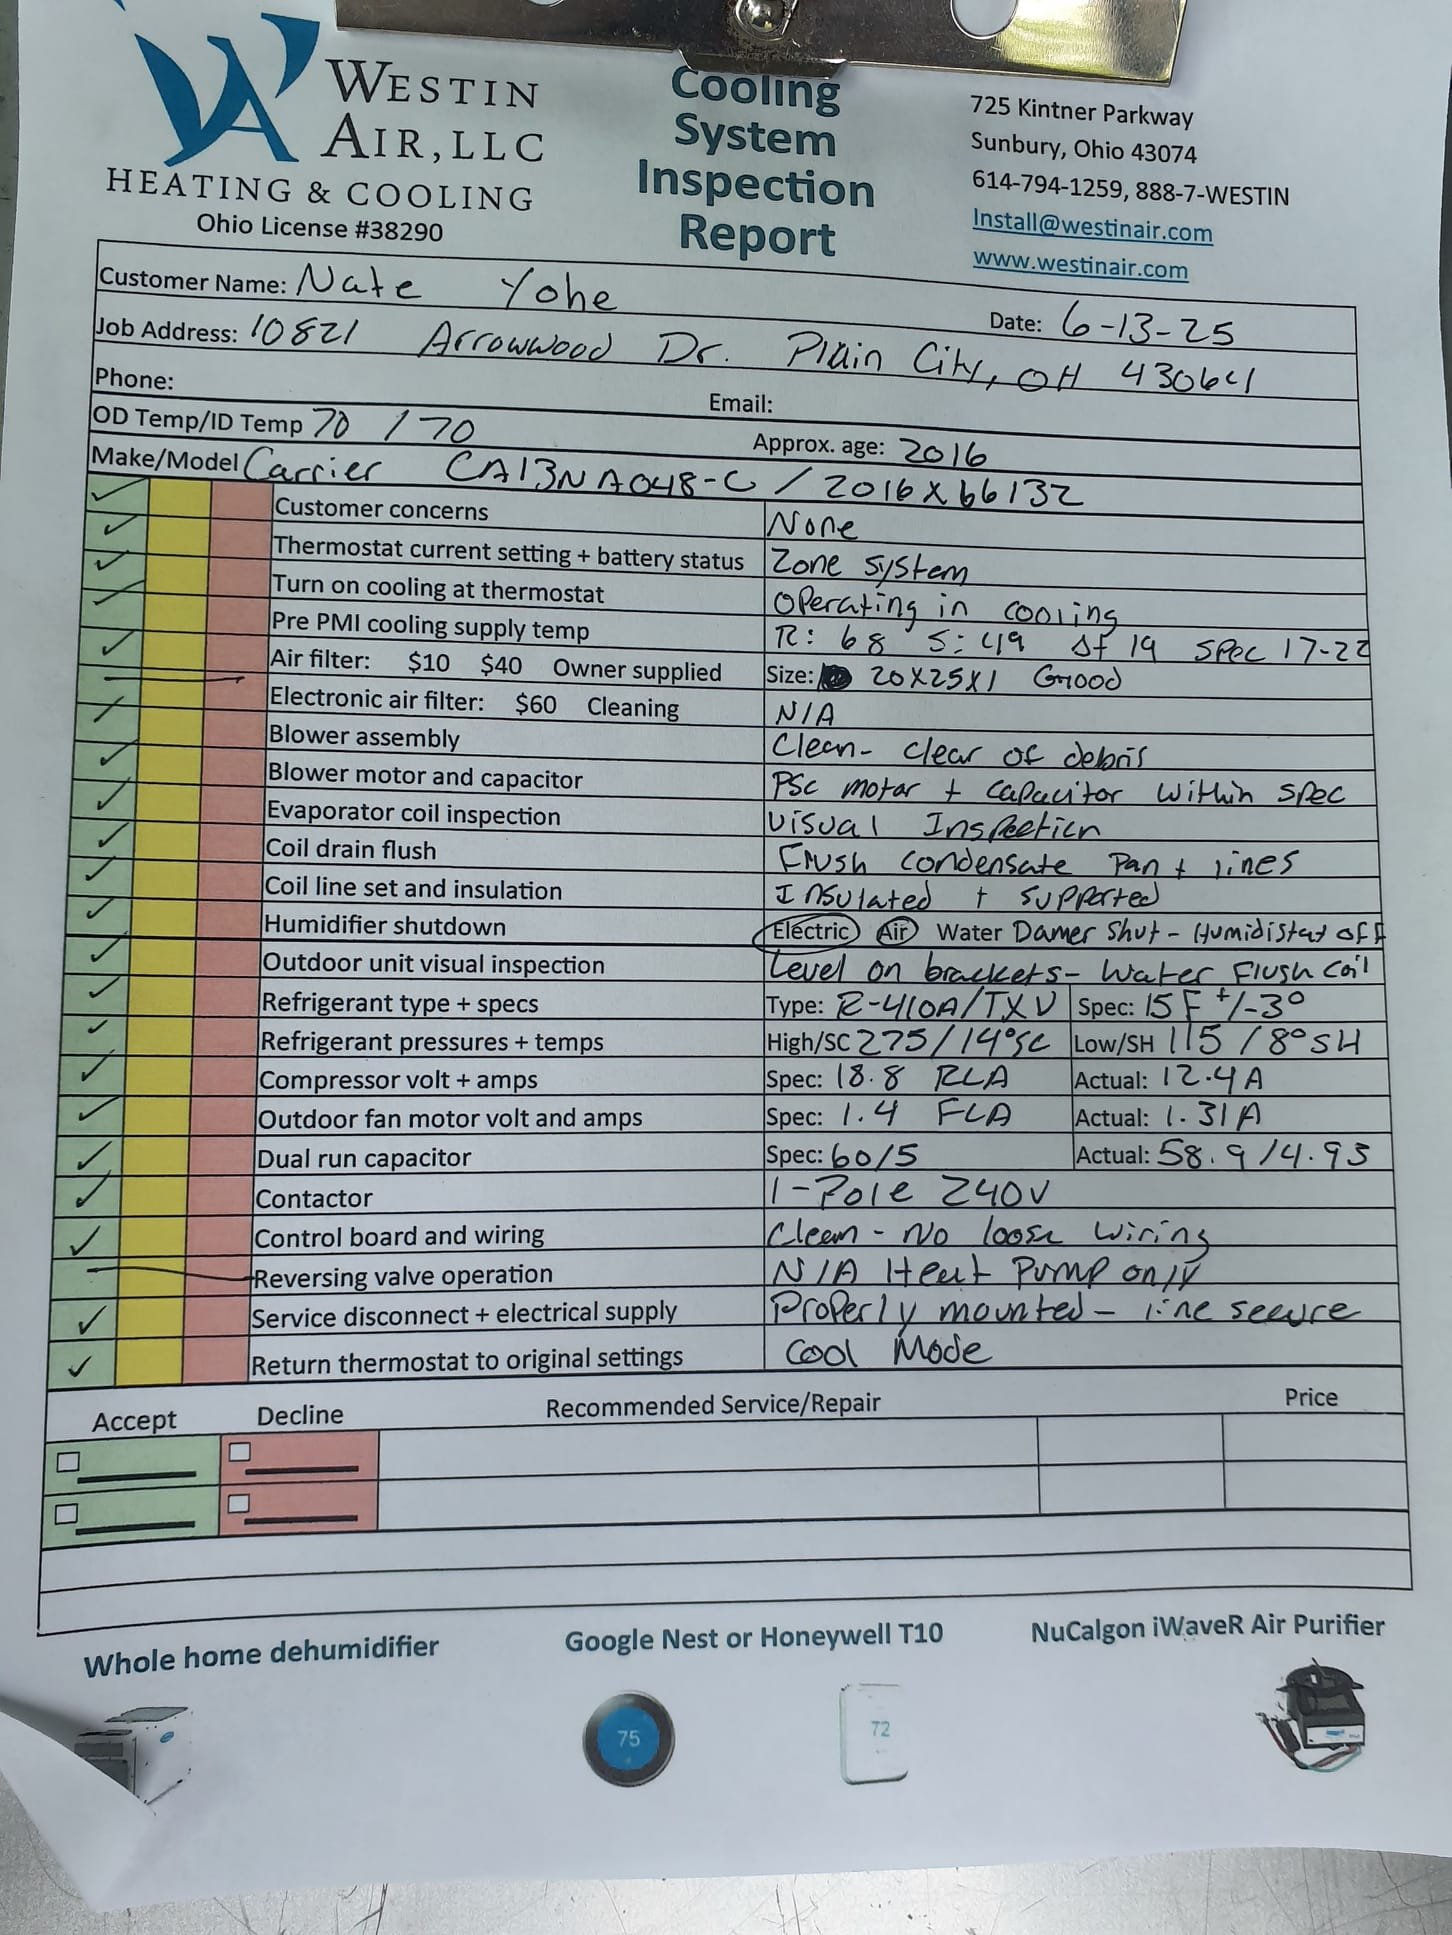 WESTIN
AIR, LLC
HEATING & COOLING
Ohio License #38290
Cooling
System
Inspection
Report
725 Kintner Parkway
Sunbury, Ohio 43074
614-794-1259, 888-7-WESTIN
Install@westinair.com
www.westinair.com
Customer Name: Nate Yohe Date: 6-13-25
Job Address: 10821 Arrowwood Dr. Plain City, OH 43064
Phone: Email:
OD Temp/ID Temp 70 / 70 Approx. age: 2016
Make/Model Carrier CA13NA048-C / 2016X66132
Customer concerns None
Thermostat current setting + battery status Zone system
Turn on cooling at thermostat Operating in cooling
Pre PMI cooling supply temp R: 68 S: 49 Δt 19 Spec 17-22
Air filter: $10 $40 Owner supplied Size: 20x25x1 Good
Electronic air filter: $60 Cleaning N/A
Blower assembly Clean- clear of debris
Blower motor and capacitor PSC motor + capacitor within spec
Evaporator coil inspection Visual Inspection
Coil drain flush Flush condensate Pan + lines
Coil line set and insulation Insulated + supported
Humidifier shutdown Electric Air Water Damer Shut - Humidistat off
Outdoor unit visual inspection Level on brackets- Water Flush Coil
Refrigerant type + specs Type: R-410A/TXV Spec: 15 F +/-3°
Refrigerant pressures + temps High/SC 275/14°SC Low/SH 115 / 8° SH
Compressor volt + amps Spec: 18.8 RLA Actual: 12.4A
Outdoor fan motor volt and amps Spec: 1.4 FLA Actual: 1.31A
Dual run capacitor Spec: 60/5 Actual: 58.9/4.93
Contactor 1-Pole 240V
Control board and wiring Clean - No loose wiring
Reversing valve operation N/A Heat Pump only
Service disconnect + electrical supply Properly mounted - line secure
Return thermostat to original settings Cool Mode
Accept Decline Recommended Service/Repair Price
Whole home dehumidifier Google Nest or Honeywell T10 NuCalgon iWaveR Air Purifier
75 72